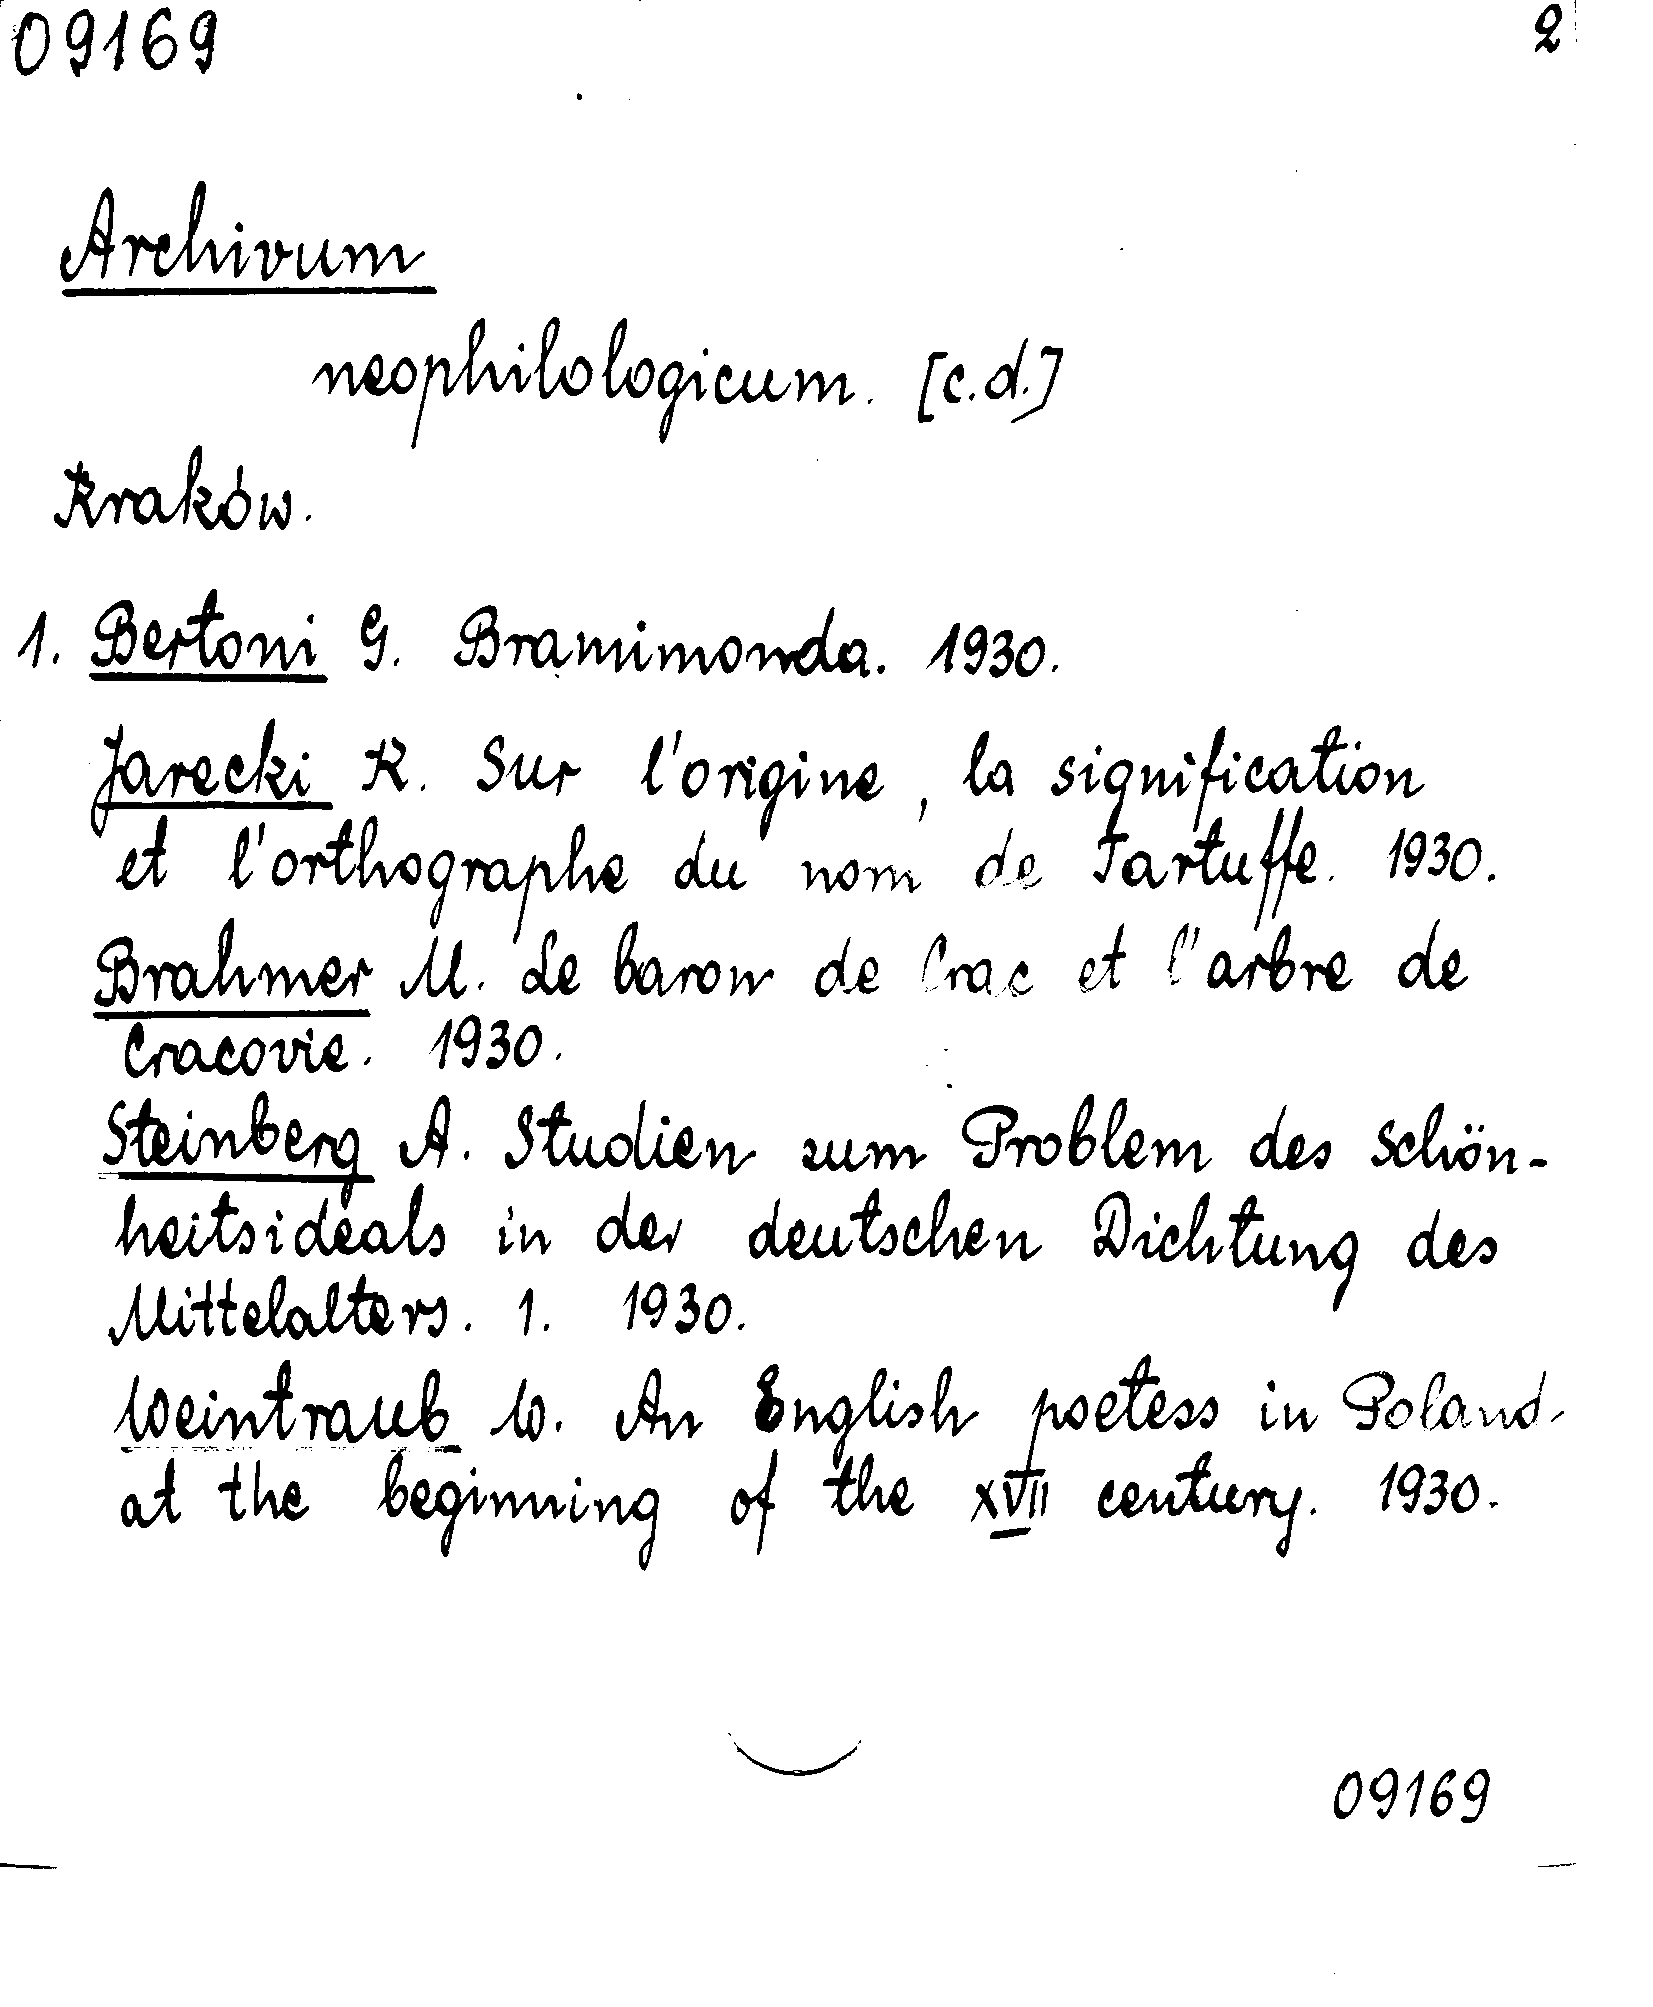 09169 2
Archivum
neophilologicum. [c.d.]
Kraków.
1. Bertoni G. Bramimonda. 1930.
Jarecki K. Sur l'origine, la signification
et l'orthographe du nom de Tartuffe. 1930.
Brahmer M. Le baron de Crac et l'arbre de
Cracovie. 1930.
Steinberg A. Studien zum Problem des Schön-
heitsideals in der deutschen Dichtung des
Mittelalters. 1. 1930.
Weintraub W. An English poetess in Poland
at the beginning of the XVII century. 1930.
09169